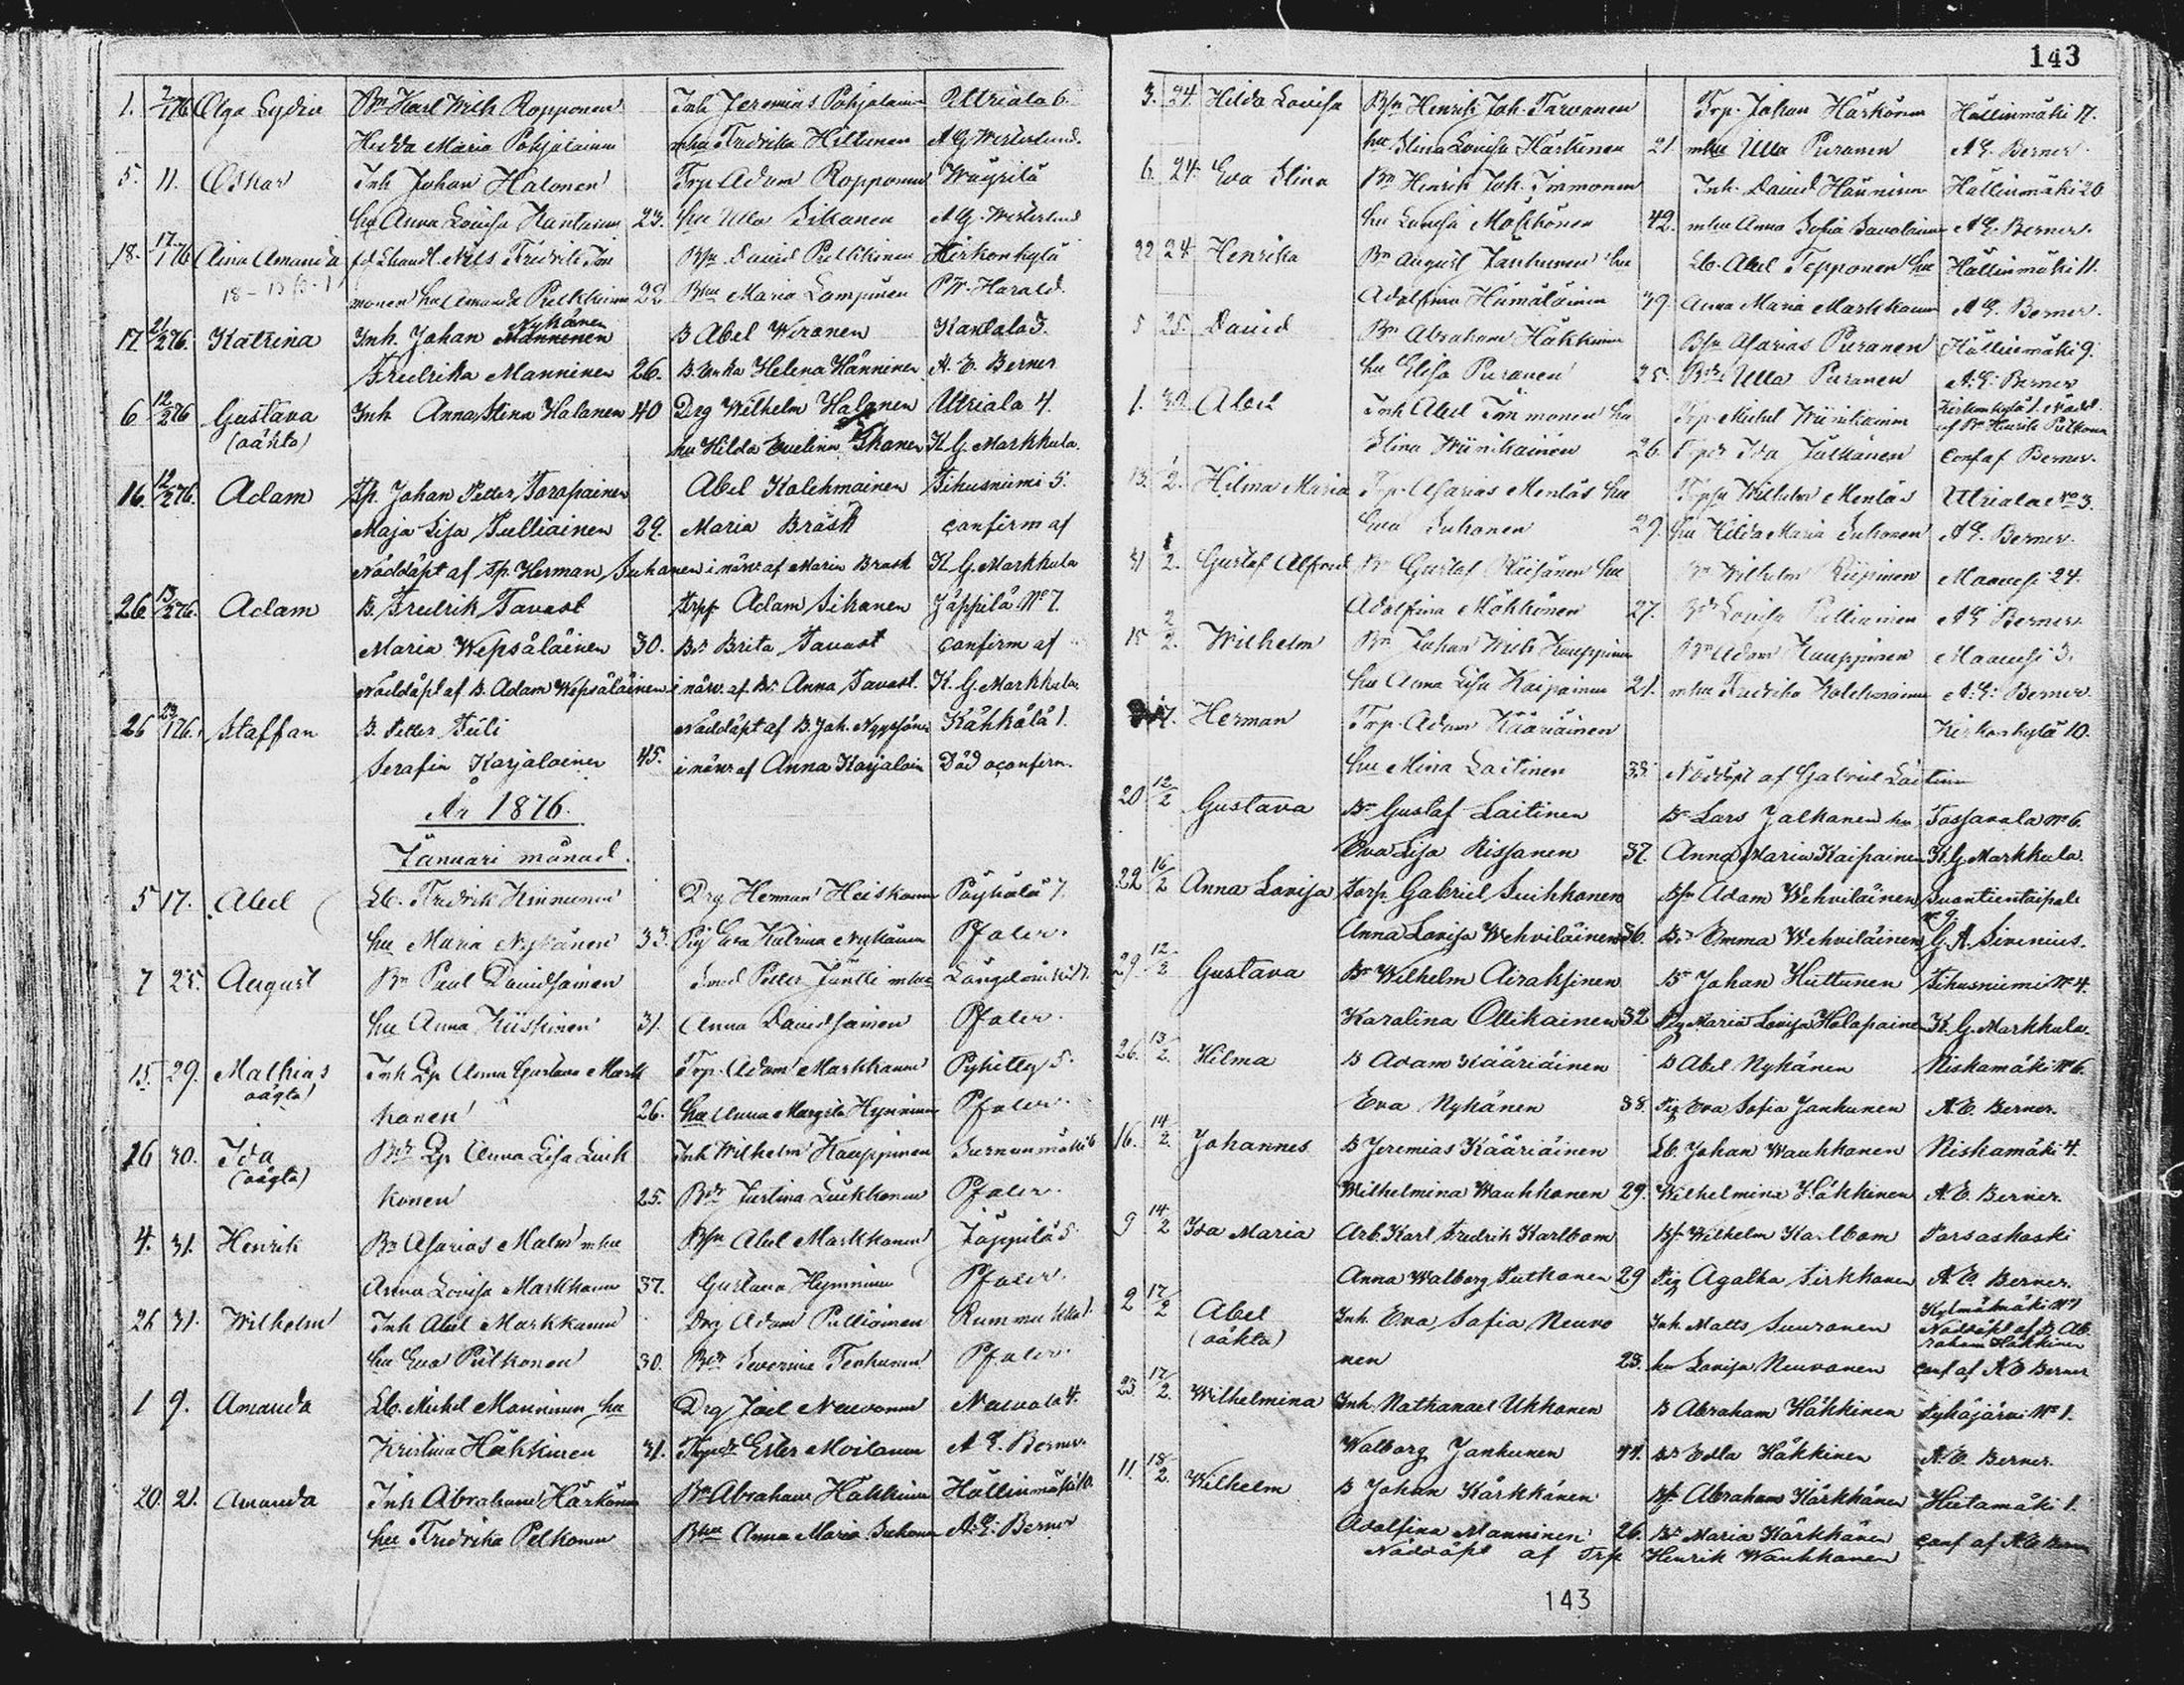 1. 2/1 76 Olga Lydia Bn Karl Wilh Ropponen Inh Jeremias Pohjalain Utriala 6.
Hedda Maria Pohjalainen mhu Fredrika Hiltunen A G Westerlund.
5. 11. Oskar Inh Johan Halonen Trp Adam Ropponen Wäyrilä
hu Anna Lovisa Hantainen 23. hu Ulla Sikanen A G. Westerlund
18. 17/1 76 Aina Amanda fd Lhandl. Nils Fredrik Im Bsn David Pulkkinen Kirkonkylä
18 - 13/6 - 1
monen hu Amanda Pulkkinen 22 Bhu Maria Lampinen P W. Harald.
Nykänen
17. 21/2 76. Katrina Inh. Johan Manninen B Abel Wiranen Kantala 3.
Fredrika Manninen 26. B. Enka Helena Hänninen A. E. Berner
6 12/2 76 Gustava Inh Anna Stina Halanen 40 Drg Wilhelm Halonen Utriala 4.
(oäkta) hu Hilda Evelina Ihanen K G. Markkula.
16. 12/2 76. Adam Tp. Johan Petter Torapainen Abel Kolehmainen Sihusniemi 5.
Maja Lisa Tulliainen 29. Maria Bräsk confirm af
Nöddöpt af Tp. Herman Juhanen i närv. af Maria Brask K G. Markkula
26 13/2 76. Adam B. Fredrik Tavast Trpf Adam Sihanen Jäppilä No 7.
Maria Wepsäläinen 30. Bdr Brita Tavast confirm af
Nöddöpt af B. Adam Wepsäläinen i närv. af Bdr Anna Tavast. K. G. Markkula.
26 23/1 76. Staffan B. Petter Tuli Nöddöpt af B. Joh. Nyyssönen Kähkölä 1.
Serafia Karjalainen 45. i närv af Anna Karjalain Död oconfirm.
År 1876.
Januari månad.
5 17. Abel Lb. Fredrik Kinnunen Drg Herman Heiskanen Päyhölä 7.
hu Maria Nykänen 33. Pig Eva Katrina Nykänen Pfaler.
7 25. August Bn Paul Davidsainen Smed Petter Jäntti mhu Längelmäki 7.
hu Anna Kiiskinen 31. Anna Davidsainen Pfaler.
15. 29. Mathias Inh Qp Anna Gustava Mark Trp. Adam Markkanen Pyhitty 5.
oägta) kanen 26. hu Anna Margeta Hynninen Pfaler.
16 30. Ida Bdr Qp Anna Lisa Luuk Inh Wilhelm Kauppinen Surnunmäki 6
(oägta) konen 25. Bdr Justina Luukkonen Pfaler.
4. 31. Henrik Bn Asarias Malm mhu Bsn Abel Markkanen Jäppilä 5.
Anna Lovisa Markkanen 37. Gustava Hynninen Pfaler.
26 31. Wilhelm Inh Abel Markkanen Drg Adam Pulliainen Rummukka 1.
hu Eva Pulkonen 30. Bdr Severina Tenhunen Pfaler.
1 9. Amanda Lb. Mikel Manninen hu Drg Joel Neuvonen Neuvola 4.
Kristina Häkkinen 31. Trpdr Ester Moilanen A. E. Berner.
20. 21. Amanda Inh Abraham Härkönen Bn Abraham Häkkinen Hällinmäki 10.
hu Fredrika Pelkonen Bhu Anna Maria Juhonen A. E. Berner
143
3. 24. Hilda Lovisa Bsn Henrik Joh. Tarvanen Trp. Johan Härkönen Hällinmäki 17.
hu Stina Lovisa Härkönen 21. mhu Ulla Puranen A E. Berner.
6. 24. Eva Stina Bn Henrik Joh. Immonen Inh. David Hänninen Hällinmäki 20
hu Lovisa Mökkönen 42. mhu Anna Sofia Savolainen A. E. Berner.
22 24 Henrika Bn August Jankunen hu Lb. Abel Tepponen hu Hällinmäki 11.
Adolfina Hämäläinen 39. Anna Maria Markkanen A E. Berner.
5 25. David Bn Abraham Häkkinen Bsn Asarias Puranen Hällinmäki 9.
hu Elisa Puranen 25. Bdr Ulla Puranen A. E. Berner
1. 30. Abel Inh Abel Immonen hu Trp. Mikel Wiinikainen Kirkonkylä 1. Nödd.
af Bn Henrik Pulkonen
Stina Wiinikainen 26. Trpdr Ida Jalkanen Conf af Berner.
13. 1/2. Hilma Maria Trp. Asarias Mentäs hu Trpsn Wilhelm Mentäs Utriala No 3.
Eva Juhonen 29. hu Hilda Maria Juhonen A E. Berner.
31 1/2. Gustaf Alfred Bn Gustaf Riisänen hu Bn Wilhelm Riipinen Maavesi 24.
Adolfina Mökkönen 27. Bdr Lovisa Pulliainen A E Berner.
15 2/2. Wilhelm Bn Johan Wilh Kauppinen Bn Adam Kauppinen Maavesi 3.
hu Anna Lisa Kaipainen 21. mhu Fredrika Kolehmainen A. E. Berner
7. Herman Trp. Adam Kääriäinen Kirkonkylä 10.
hu Mina Laitinen 33. Nöddöpt af Gabriel Laitinen
20 12/2 Gustava Bn Gustaf Laitinen Bn Lars Jalkanen hu Tossavala No 6.
Eva Lisa Rissanen 37. Anna Maria Kaipainen K. G. Markkula.
22 16/2 Anna Lovisa Torp. Gabriel Suihkonen Bsn Adam Wehviläinen Suontientaipale
No 9.
Anna Lovisa Wehviläinen 36. Bdr Emma Wehviläinen G. A. Sirenius.
29. 12/2 Gustava Bn Wilhelm Airaksinen Bn Johan Huttunen Sihusniemi No 4.
Karolina Ollikainen 32 Pig Maria Lovisa Holapainen K. G. Markkula.
26. 13/2. Hilma B Adam Kääriäinen B Abel Nykänen Niskamäki No 6.
Eva Nykänen 38. Pig Eva Sofia Jankunen A. E. Berner.
16. 14/2. Johannes B Jeremias Kääriäinen Lb. Johan Wauhkonen Niskamäki 4.
Wilhelmina Wauhkonen 29. Wilhelmina Häkkinen A. E. Berner.
9 14/2 Ida Maria Arb. Karl Fredrik Karlbom Bsn Wilhelm Karlbom Porsaskoski
Anna Walborg Putkonen 29 Pig Agatha Sirkkanen A. E. Berner.
2 17/2 Abel Inh. Eva Sofia Neuvo Inh. Matts Suuronen Kylmämäki No 7
Nöddöpt af B Ab
raham Häkkinen
(oäkta) nen 23. hu Lovisa Neuvonen conf af A E Berner
23 17/2. Wilhelmina Inh. Nathanael Ukkonen B Abraham Häkkinen Syhäjärvi No 1.
Walborg Jankunen 44. Bdr Edla Häkkinen A. E. Berner.
11. 18/2. Wilhelm B Johan Kärkkänen Bsn Abraham Kärkkänen Hietamäki 1.
Adolfina Manninen 26. Bdr Maria Kärkkänen Conf af A E Berner
Nöddöpt af Trp Henrik Wauhkonen
143